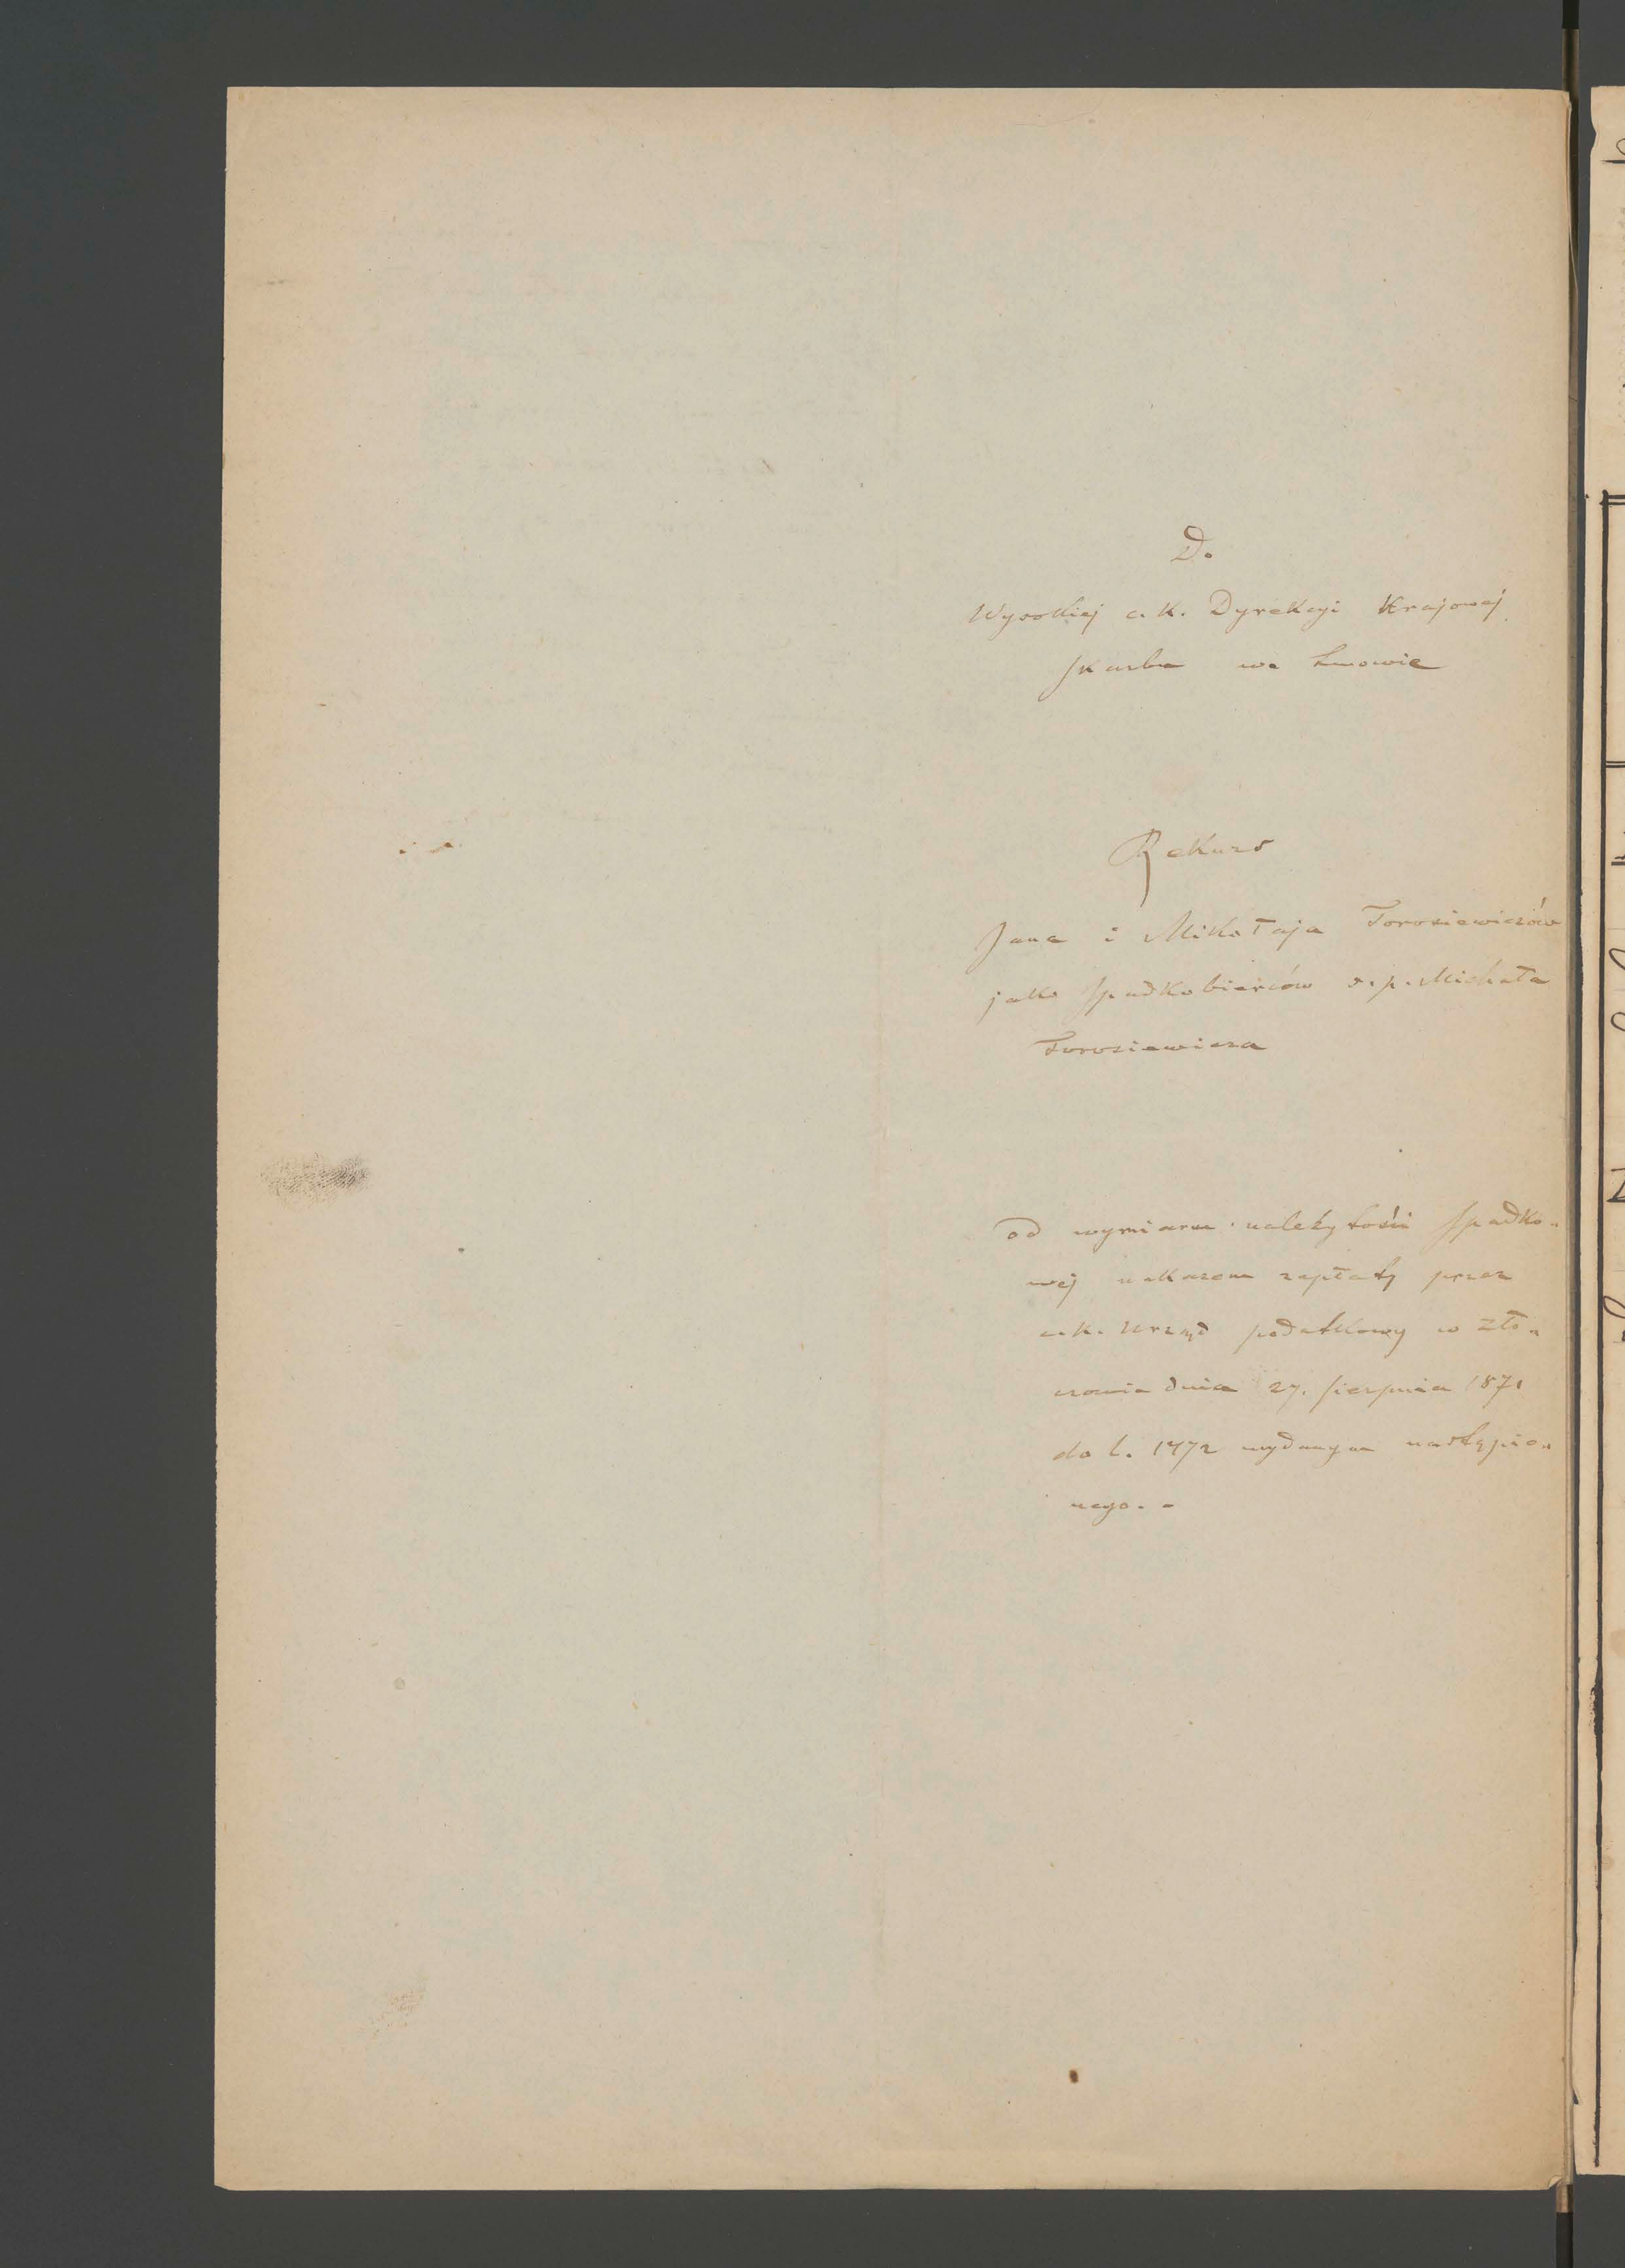 Do
Wysokiej c. k. Dyrekcyi Krajowej
skarbu we Lwowie
Rekurs
Jana i Mikołaja Torosiewiczów
jako spadkobierców ś. p. Michała
Torosiewicza
od wymiaru należytości spadko-
wej nakazem zapłaty przez
c. k. Urząd podatkowy w Zło-
czowie dnia 27. sierpnia 1871
do l. 1472 wydanym nastąpio-
nego. -